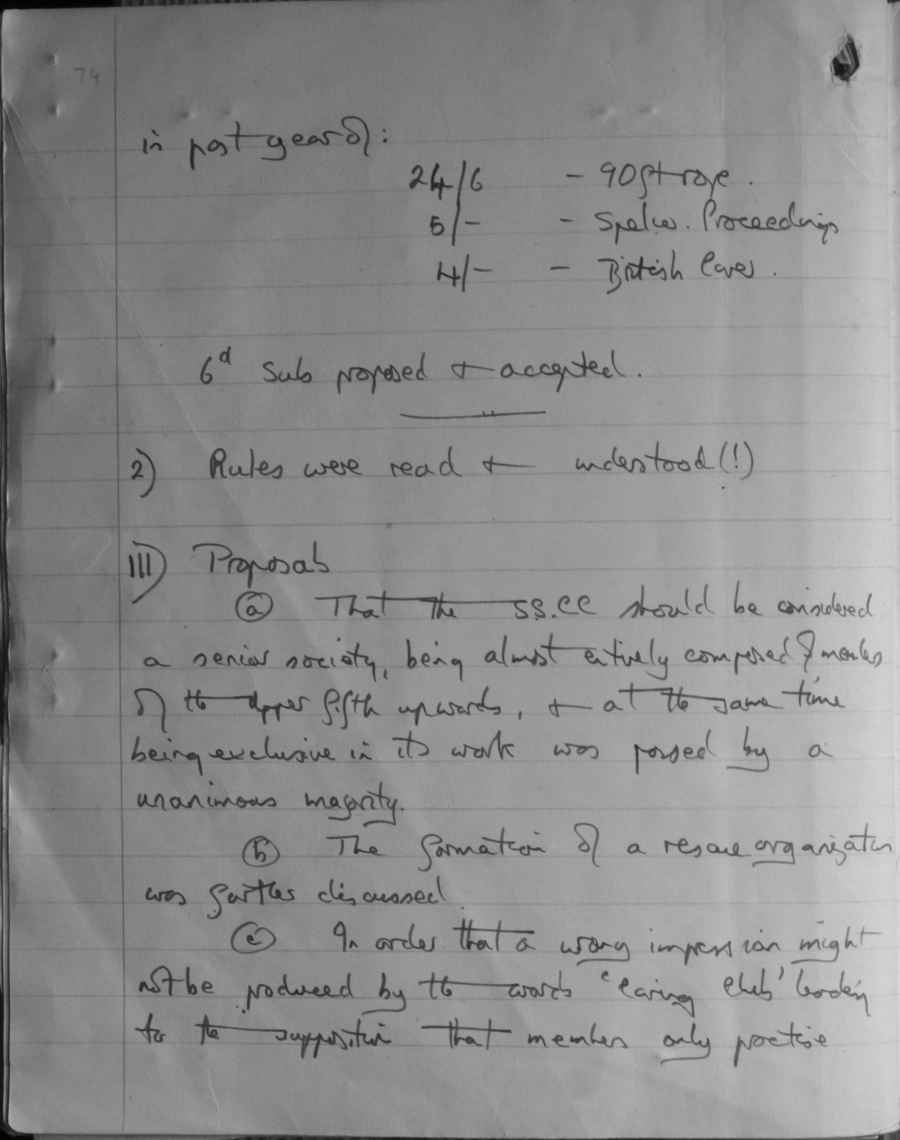 74
in past year of:
24/6 - 90ft rope.
5/- - Speleo. Proceedings
4/- - British Caves.
6d Sub proposed + accepted.
2) Rules were read + understood(!)
III) Proposals
(a) That the SS.CC should be considered
a senior society, being almost entirely composed of members
of the upper fifth upwards, + at the same time
being exclusive in its work was passed by a
unanimous majority.
(b) The formation of a rescue organization
was further discussed.
(c) In order that a wrong impression might
not be produced by the words 'Caving Club' leading
to the supposition that members only practise